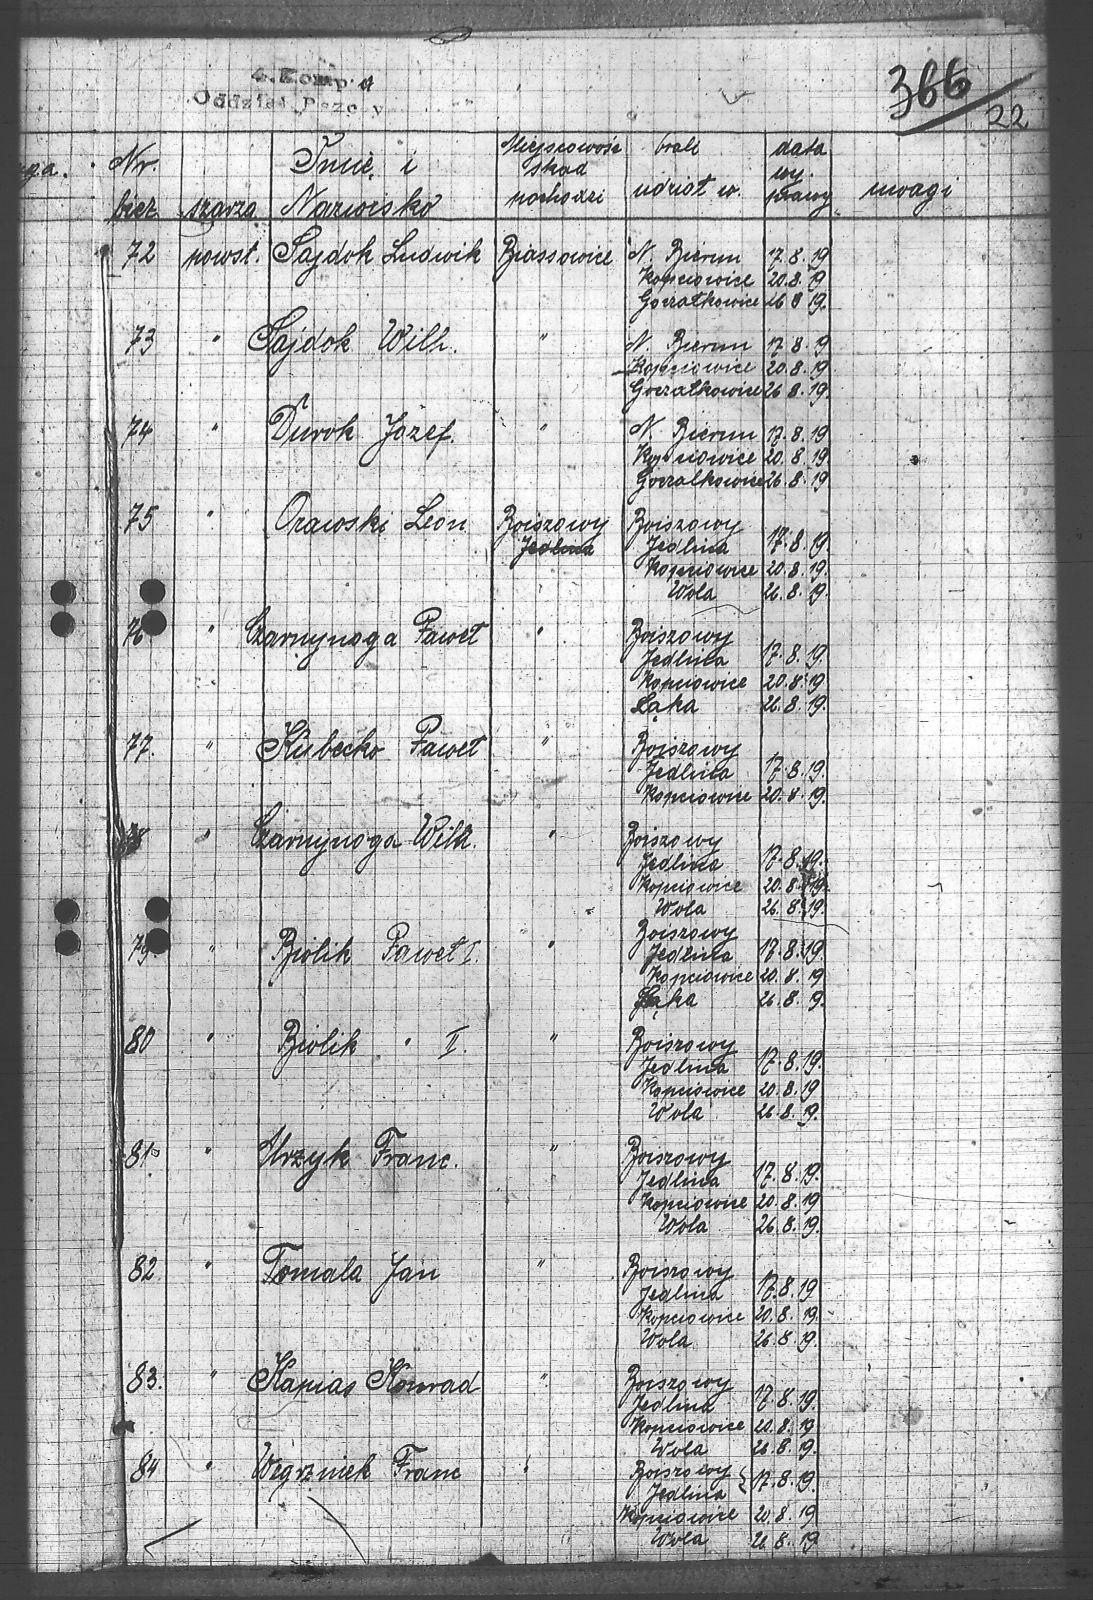 4. Komp a
Oddział Pszczy
366
22
ga. Nr. bież szarża Imię i Nazwisko Miejscowość skąd pochodzi brali udział w. data wy. prawy uwagi
72 powst. Sajdok Ludwik Biassowice N. Bierun 17.8.19
Kopciowice 20.8.19
Goczałkowice 26 8 19.
73 " Sajdok Wilh. " N. Bierun 17 8 19
Kopciowice 20.8.19
Goczałkowice 26 8 19.
74 " Durok Józef. " N. Bierun 17.8.19
Kopciowice 20.8 19
Goczalkowice 26.8 19
75 " Orawski Leon Boiszowy Boiszowy
Jedlina Jedlina 17.8.19.
Kopciowice 20.8.19.
Wola 26.8.19.
76 " Czarnynoga Paweł " Boiszowy
Jedlina 17.8.19.
Kopciowice 20.8.19
Łąka 26.8.19.
77. " Kubecko Paweł " Boiszowy
Jedlina 17.8.19.
Kopciowice 20.8.19.
78 " Czarnynoga Wilh. " Boiszowy
Jedlina 17.8.19.
Kopciowice 20.8.19.
Wola 26.8.19.
79 " Biolik Paweł I. " Boiszowy
Jedlina 17.8.19.
Kopciowice 20.8.19
Łąka 26.8.19.
80 " Biolik " II. " Boiszowy
Jedlina 17.8.19.
Kopciowice 20.8.19
Wola 26.8.19.
81 " Urzyk Franc. " Boiszowy
Jedlina 17.8.19.
Kopciowice 20.8.19
Wola 26.8.19.
82. " Tomala Jan " Boiszowy
Jedlina 17.8.19
Kopciowice 20.8.19.
Wola 26.8.19.
83. " Kapias Konrad " Boiszowy
Jedlina 17.8.19.
Kopciowice 20.8.19
Wola 26.8.19.
84 " Węgrzinek Franc " Boiszowy
Jedlina } 17.8.19.
Kopciowice 20.8.19
Wola 26.8.19